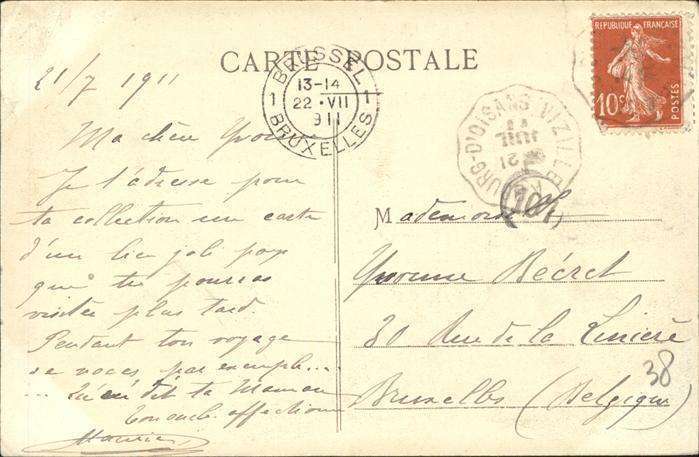 CARTE POSTALE
21/7 1911
Ma chère Yvonne
Je t'adresse pour
ta collection une carte
d'un bien joli pays
que tu pourras
visiter plus tard.
Pendant ton voyage
de noces par exemple....
... Qu'en dit ta Maman
Ton oncle affectionné
Maurice
BRÜSSEL
13-14
1 22·VII 1
911
BRUXELLES
BOURG-D'OISANS VIZILLE
21
JUIL
11
REPUBLIQUE FRANÇAISE
10c
POSTES
Mademoiselle
Yvonne Bécret
30 Rue de la Linière
Bruxelles (Belgique)
38